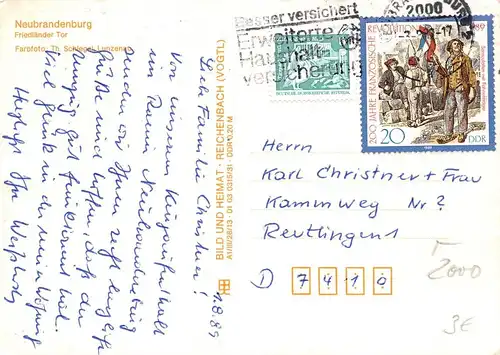 Neubrandenburg
Friedländer Tor
Farbfoto: Th. Schlegel, Lunzenau
Besser versichert
Erweiterte
Haushalt-
versicherung
2000
200 JAHRE FRANZÖSISCHE REVOLUTION
20
DDR
BILD UND HEIMAT · REICHENBACH (VOGTL)
A1/III/26/13 · 01 03 0315/31 · DDR 0,20 M
1.8.89
Liebe Familie Christner!
Von unserem Kurzaufenthalt
im Raum Neubrandenburg
senden wir Ihnen recht herzliche
Grüße und hoffen, daß der
Umzug gut funktioniert hat.
Viel Glück in der neuen Wohnung
Herzlichst Ihre
Herrn
Karl Christner + Frau
Kammweg Nr 2
Reutlingen 1
D 7410
2000
3€